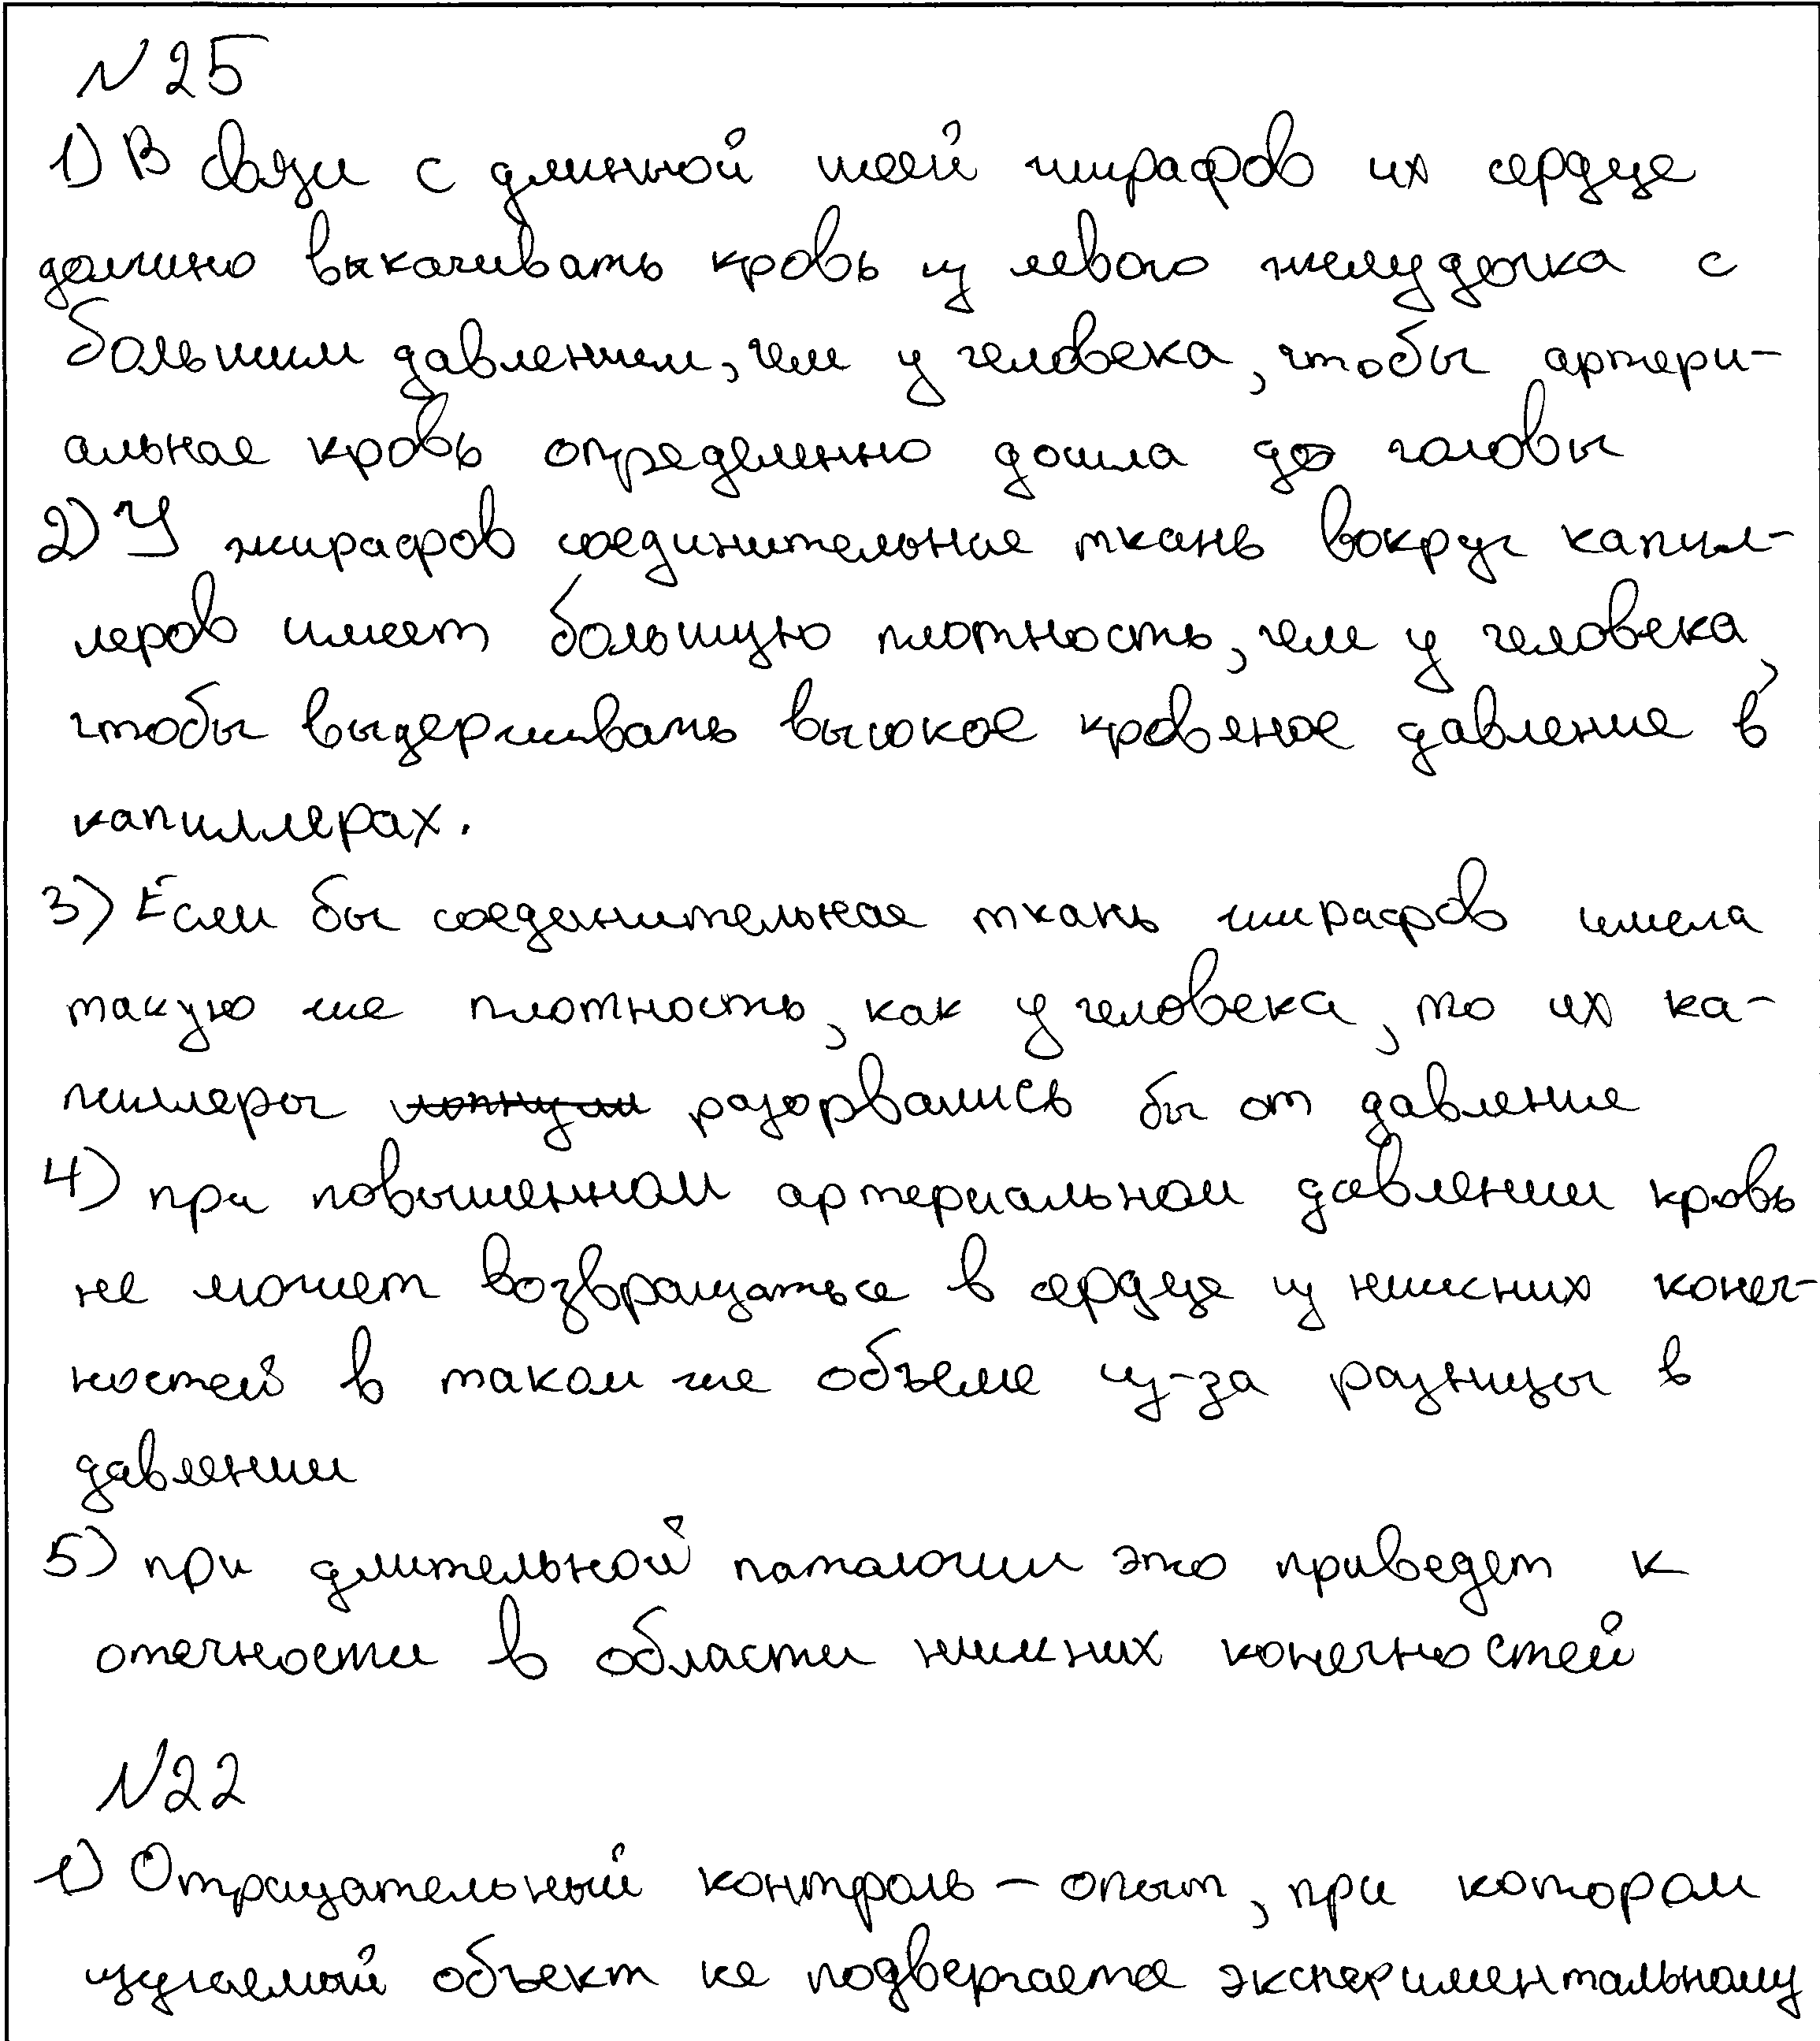 № 25
1) В связи с длинной шеей жирафов их сердце
должно выкачивать кровь из левого желудочка с
большим давлением, чем у человека, чтобы артери-
альная кровь определенно дошла до головы
2) У жирафов соединительная ткань вокруг капил-
леров имеет большую плотность, чем у человека,
чтобы выдерживать высокое кровяное давление в
капиллерах.
3) Если бы соединительная ткань жирафов имела
такую же плотность, как у человека, то их ка-
пиллеры лопнули разорвались бы от давления
4) при повышенном артериальном давлении кровь
не может возвращаться в сердце из нижних конеч-
ностей в таком же объеме из-за разницы в
давлении
5) при длительной патологии это приведет к
отечности в области нижних конечностей
№22
1) Отрицательный контроль – опыт, при котором
изучаемый объект не подвергается экспериментальному